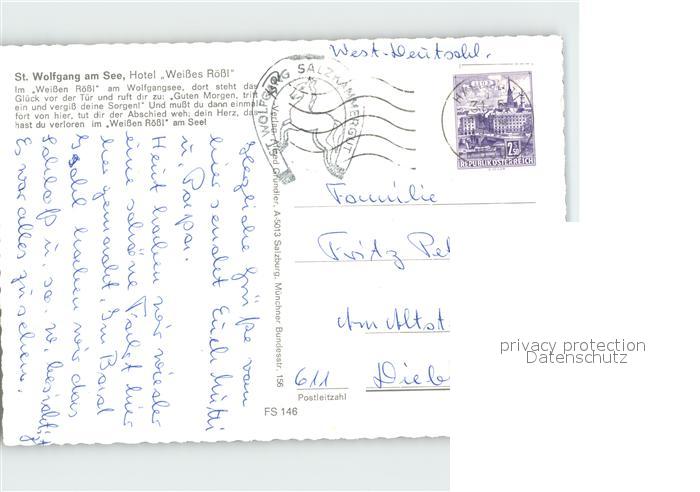 St. Wolfgang am See, Hotel „Weißes Rößl"
Im „Weißen Rößl" am Wolfgangsee, dort steht das
Glück vor der Tür und ruft dir zu: „Guten Morgen, tritt
ein und vergiß deine Sorgen!" Und mußt du dann einmal
fort von hier, tut dir der Abschied weh; dein Herz, das
hast du verloren im „Weißen Rößl" am See!
West-Deutschl.
WOLFGANG SALZKAMMERGUT
2.50
REPUBLIK ÖSTERREICH
Herzliche Grüße vom
hier sendet Euch Mutti
u. Papa.
Heut haben wir wieder
eine schöne Fahrt hier
her gemacht. In Bad
Ischl haben wir das
u. so. w. besichtigt
Es war alles zu sehen.
Verlag Alfred Gründler, A-5013 Salzburg, Münchner Bundesstr. 156
Familie
Fritz Pet
Am Altst
611 Dieb
Postleitzahl
FS 146
privacy protection
Datenschutz